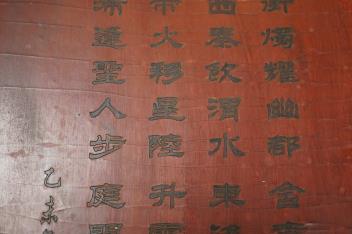 燭耀幽都含
西秦飲渭水東
帶火移星陸升
逢聖人步庭
乙未